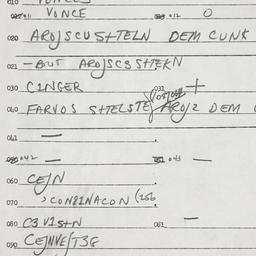 010
011 VONCE 012 0
020 AROJSCUSHTELN DEM CUNK
021 -BUT AROJSCSSHTEKN
030 CINGER 031 +
040 FARVOS SHTELSTE AROJ2 DEM
041 —
042 — 043 —
060 CEJN
070 >CONBINACON (256
080 C3 VISHN 081 —
090 CEJNVE/T3G